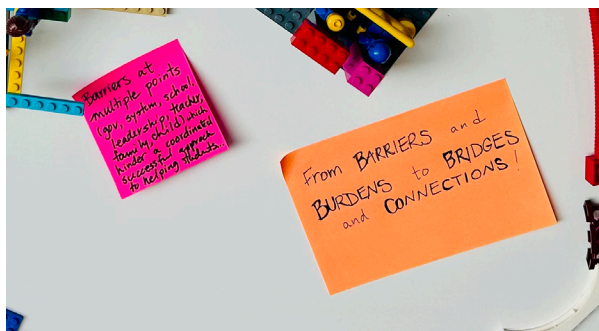 Barriers at
multiple points
(gov, system, school,
leadership, teacher,
family, child) which
hinder a coordinated
successful approach
to helping students.
From BARRIERS and
BURDENS to BRIDGES
and CONNECTIONS!